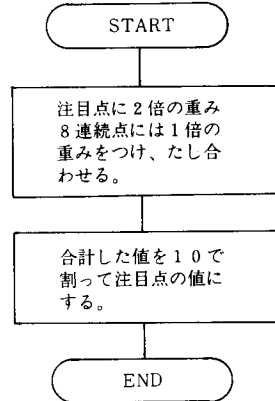 START
注目点に2倍の重み
8連続点には1倍の
重みをつけ、たし合
わせる。
合計した値を10で
割って注目点の値に
する。
END